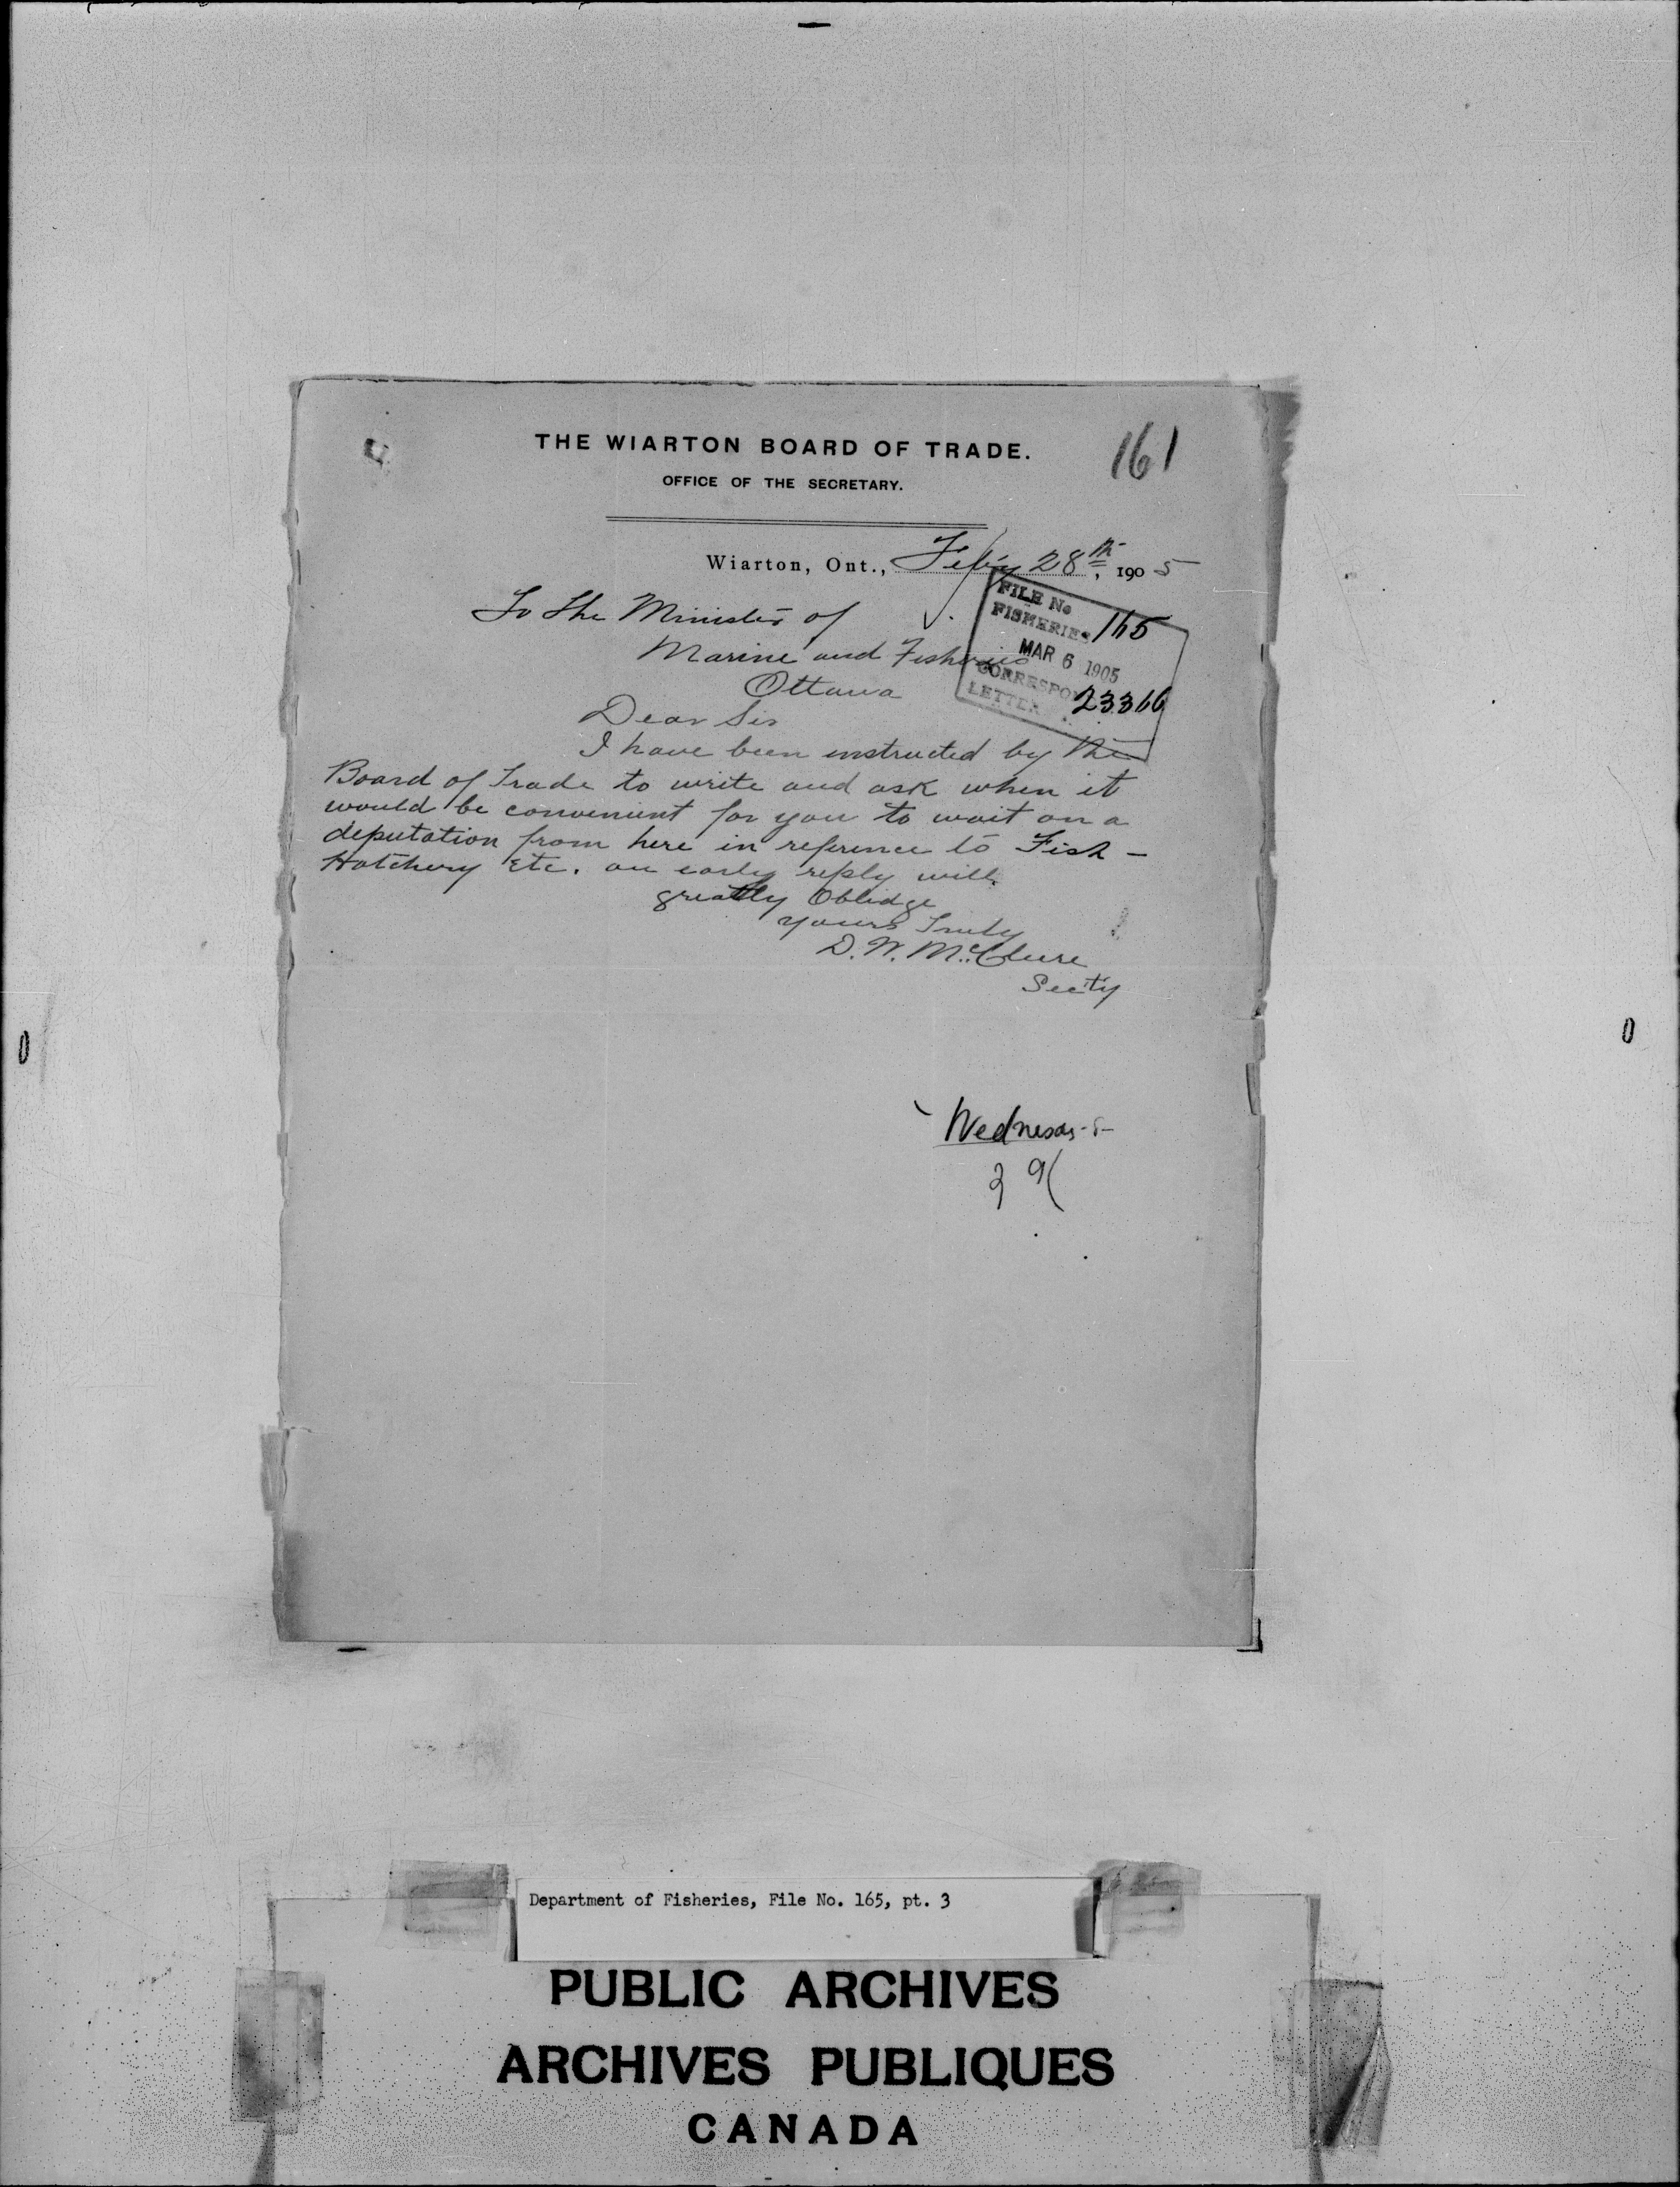 THE WIARTON BOARD OF TRADE.
161
OFFICE OF THE SECRETARY.
Wiarton, Ont., Feb'y 28th, 1905
To The Minister of
Marine and Fisheries
Ottawa
FILE No
FISHERIES 165
MAR 6 1905
LETTER 23366
Dear Sir
I have been instructed by the
Board of Trade to write and ask when it
would be convenient for you to wait on a
deputation from here in reference to Fish-
Hatchery Etc. an early reply will
greatly Oblidge
yours Truly
D. W. McClure
Sec'ty
Wednesday
Department of Fisheries, File No. 165, pt. 3
PUBLIC ARCHIVES
ARCHIVES PUBLIQUES
CANADA